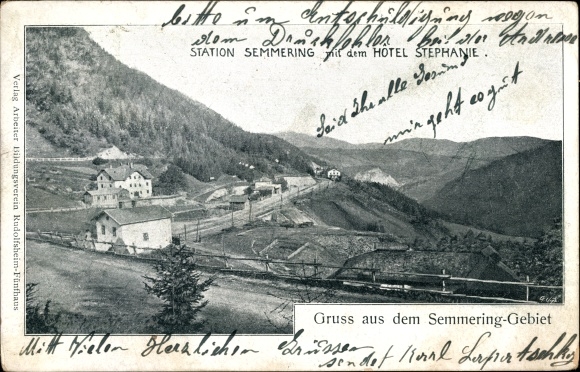 Bitte um Entschuldigung wegen
dem Druckfehler bei der Andresse
STATION SEMMERING mit dem HOTEL STEPHANIE.
Seid Ihr alle Gesund
mir geht es gut
Verlag Arbeiter Bildungsverein Rudolfsheim-Fünfhaus
Gruss aus dem Semmering-Gebiet
Mit Vielen Herzlichen Grüssen
sendet Karl